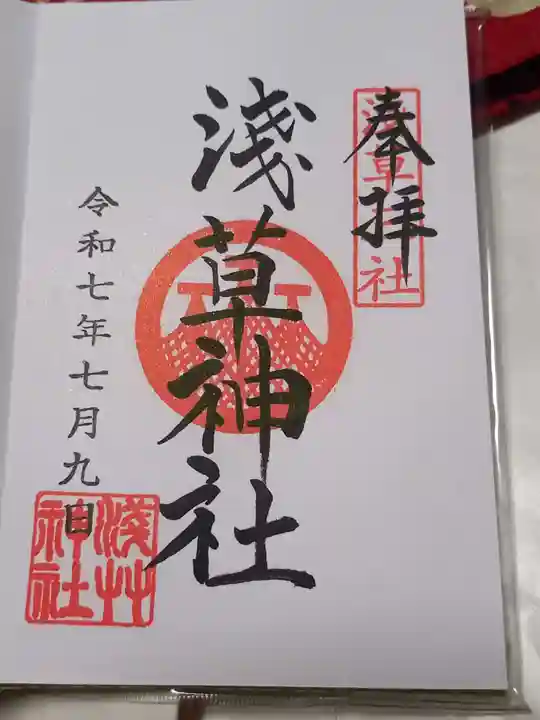 奉拝
浅草神社
浅草神社
令和七年七月九日
淺草神社